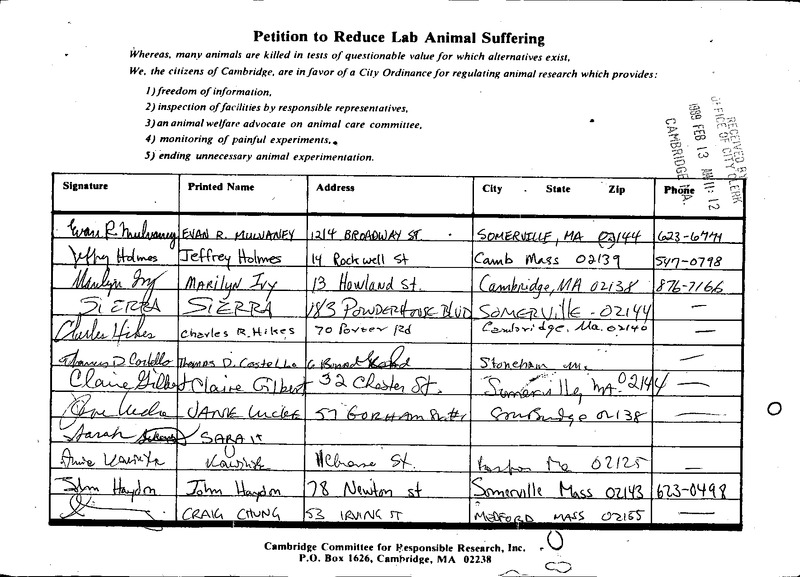 Petition to Reduce Lab Animal Suffering
Whereas, many animals are killed in tests of questionable value for which alternatives exist,
We, the citizens of Cambridge, are in favor of a City Ordinance for regulating animal research which provides:
1) freedom of information,
2) inspection of facilities by responsible representatives,
3) an animal welfare advocate on animal care committee,
4) monitoring of painful experiments,
5) ending unnecessary animal experimentation.
RECEIVED BY
OFFICE OF CITY CLERK
1989 FEB 13 AM 11: 12
CAMBRIDGE MA.
Signature Printed Name Address City State Zip Phone
Evan R. Mulvaney EVAN R. MULVANEY 1214 BROADWAY ST. SOMERVILLE, MA 02144 623-6771
Jeffrey Holmes Jeffrey Holmes 14 Rockwell St Camb Mass 02139 547-0798
Marilyn Ivy MARILYN IVY 13 Howland St. Cambridge, MA 02138 876-7166
SIERRA SIERRA 183 POWDERHOUSE BLVD SOMERVILLE - 02144 —
Charles Hikes Charles R. Hikes 70 Porter Rd Cambridge, Ma. 02140 —
Thomas D Costello Thomas D. Costello 6 Stoneham —
Claire Gilbert Claire Gilbert 32 Chester St. Somerville, MA. 02144 —
JANE 57 GORHAM 02138 —
Sarah SARAH
St. 02125 —
John Haydon John Haydon 78 Newton st Somerville Mass 02143 623-0498
CRAIG CHUNG 53 IRVING ST MEDFORD MASS 02155 —
Cambridge Committee for Responsible Research, Inc.
P.O. Box 1626, Cambridge, MA 02238